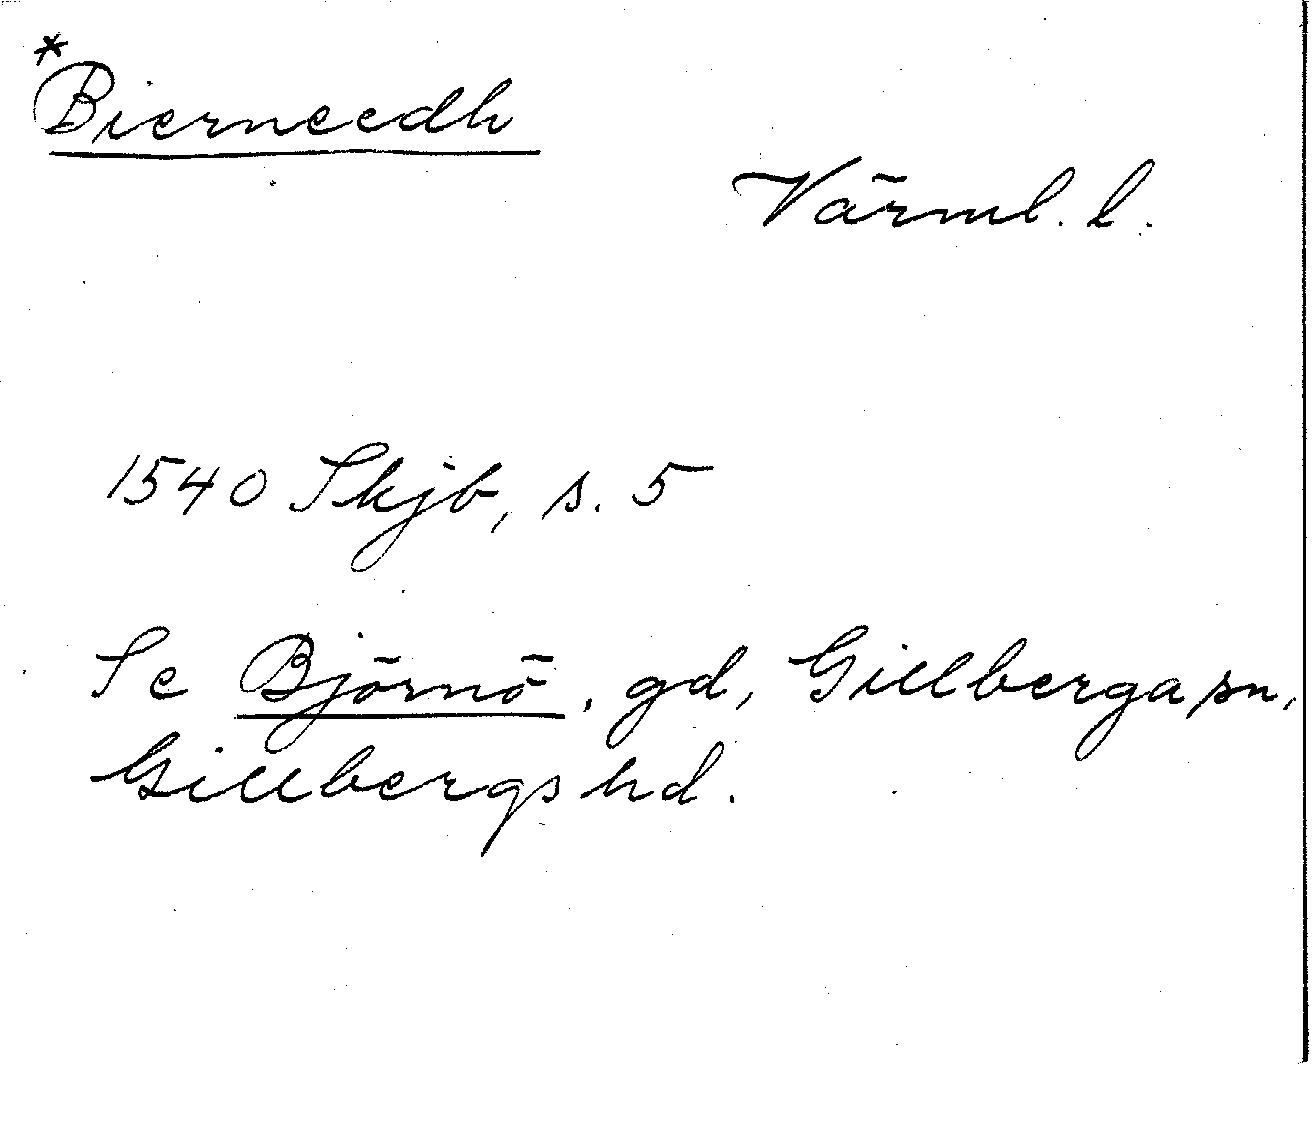 *
Bierneedh
Värml. l.
1540 Skjb, s. 5
Se Björnö, gd, Gillberga sn,
Gillbergs hd.